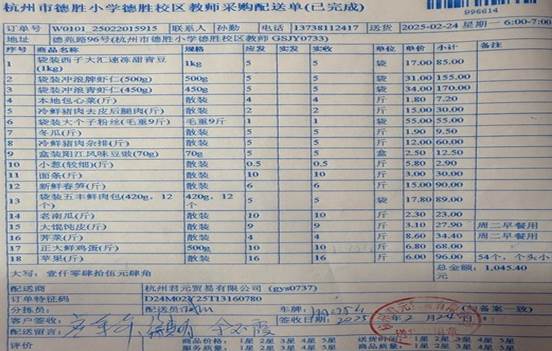 杭州市德胜小学德胜校区教师采购配送单(已完成)
996614
订单号 W0101 25022015915 联系人 孙勤 电话 13738112417 送货 2025-02-24 星期一 6:00-7:00
地址 德苑路96号(杭州市德胜小学德胜校区教师 GSJY0733)
序号 商品名称 规格 应发 实发 实收 单位 单价 小计 备注
1 袋装西子大汇速冻甜青豆(1kg) 1kg 5 5 袋 17.00 85.00
2 袋装冲浪牌虾仁(500g) 500g 5 5 袋 31.00 155.00
3 袋装冲浪青虾仁(450g) 450g 5 5 袋 34.00 170.00
4 本地包心菜(斤) 散装 4 4 斤 1.80 7.20
5 冷鲜猪肉去皮后腿肉(斤) 散装 2 2 斤 15.00 30.00
6 袋装大个子粉丝(毛重9斤) 毛重9斤 1 1 袋 55.00 55.00
7 冬瓜(斤) 散装 5 5 斤 1.90 9.50
8 冷鲜猪肉杂排(斤) 散装 5 5 斤 12.00 60.00
9 盒装阳江风味豆豉(70g) 70g 5 5 盒 2.50 12.50
10 小葱(较细)(斤) 散装 0.5 0.5 斤 5.80 2.90
11 面条(斤) 散装 10 10 斤 3.00 30.00
12 新鲜春笋(斤) 散装 6 6 斤 15.00 90.00
13 袋装五丰鲜肉包(420g，12个) 420g，12个 5 5 袋 17.80 89.00
14 老南瓜(斤) 散装 10 10 斤 2.30 23.00
15 大馄饨皮(斤) 散装 9 9 斤 3.10 27.90 周二早餐用
16 荠菜(斤) 散装 4 4 斤 8.60 34.40 周二早餐用
17 正大鲜鸡蛋(斤) 500g 10 10 斤 6.80 68.00
18 苹果(斤) 散装 16 16 斤 6.00 96.00 54个，个头小
大写: 壹仟零肆拾伍元肆角 总金额: 1,045.40
配送商 杭州君元贸易有限公司 (gys0737)
订单特征码
分拣员: 配送员 车牌: (与备案一致)
客户签收: 签收日期: 2025 年 2 月 24 日
配送留言:
评价 商品价格: 1星 2星 3星 4星 5星
服务质量: 1星 2星 3星 4星 5星